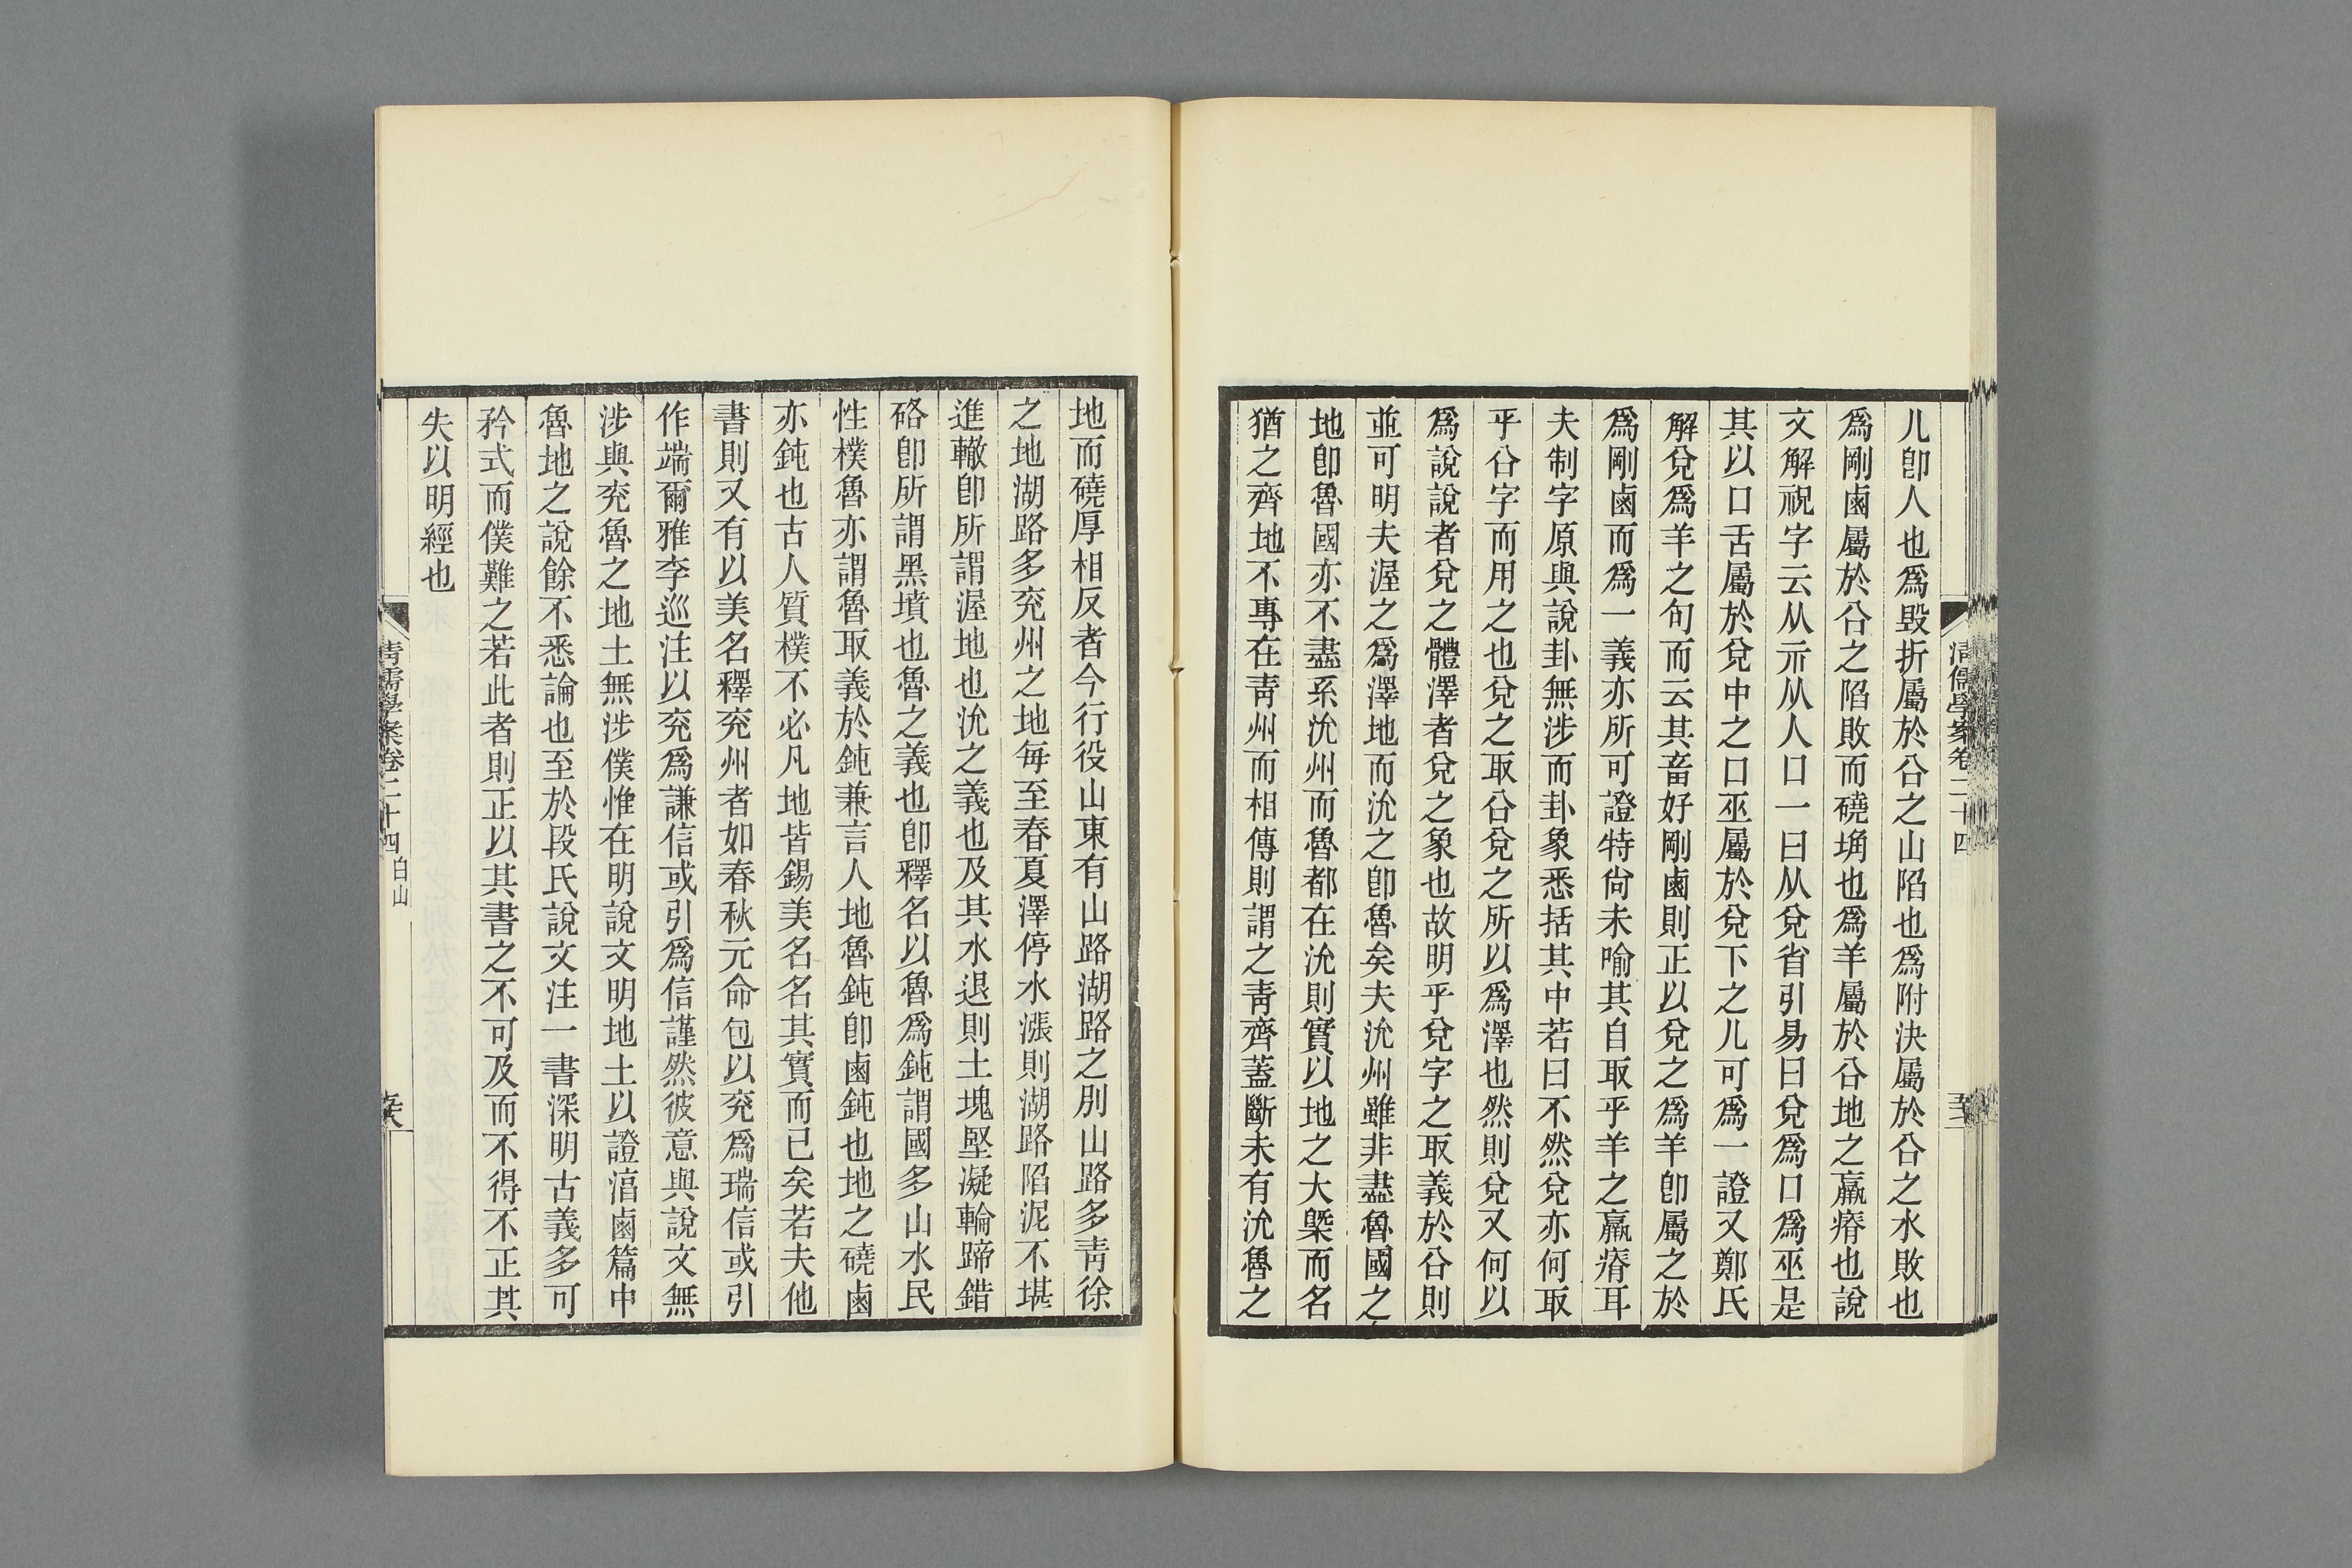 儿卽人也爲毀折屬於㕣之山陷也爲附決屬於㕣之水敗也
爲剛鹵屬於㕣之陷敗而磽埆也爲羊屬於㕣地之羸瘠也說
文解祝字云从示从人口一曰从兌省引易曰兌爲口爲巫是
其以口舌屬於兌中之口巫屬於兌下之儿可爲一證又鄭氏
解兌爲羊之句而云其畜好剛鹵則正以兌之爲羊卽屬之於
爲剛鹵而爲一義亦所可證特尙未喻其自取乎羊之羸瘠耳
夫制字原與說卦無涉而卦象悉括其中若曰不然兌亦何取
乎㕣字而用之也兌之取㕣兌之所以爲澤也然則兌又何以
爲說說者兌之體澤者兌之象也故明乎兌字之取義於㕣則
並可明夫渥之爲澤地而沇之卽魯矣夫沇州雖非盡魯國之
地卽魯國亦不盡系沇州而魯都在沇則實以地之大槩而名
猶之齊地不專在靑州而相傳則謂之靑齊蓋斷未有沇魯之
清儒學案卷二十四
地而磽厚相反者今行役山東有山路湖路之別山路多靑徐
之地湖路多兖州之地每至春夏澤停水漲則湖路陷泥不堪
進轍卽所謂渥地也沇之義也及其水退則土塊堅凝輪蹄錯
硌卽所謂黑墳也魯之義也卽釋名以魯爲鈍謂國多山水民
性樸魯亦謂魯取義於鈍兼言人地魯鈍卽鹵鈍也地之磽鹵
亦鈍也古人質樸不必凡地皆錫美名名其實而已矣若夫他
書則又有以美名釋兖州者如春秋元命包以兖爲瑞信或引
作端爾雅李巡注以兖爲謙信或引爲信謹然彼意與說文無
涉與兖魯之地土無涉僕惟在明說文明地土以證㴞鹵篇中
魯地之說餘不悉論也至於段氏說文注一書深明古義多可
矜式而僕難之若此者則正以其書之不可及而不得不正其
失以明經也
清儒學案卷二十四 白山